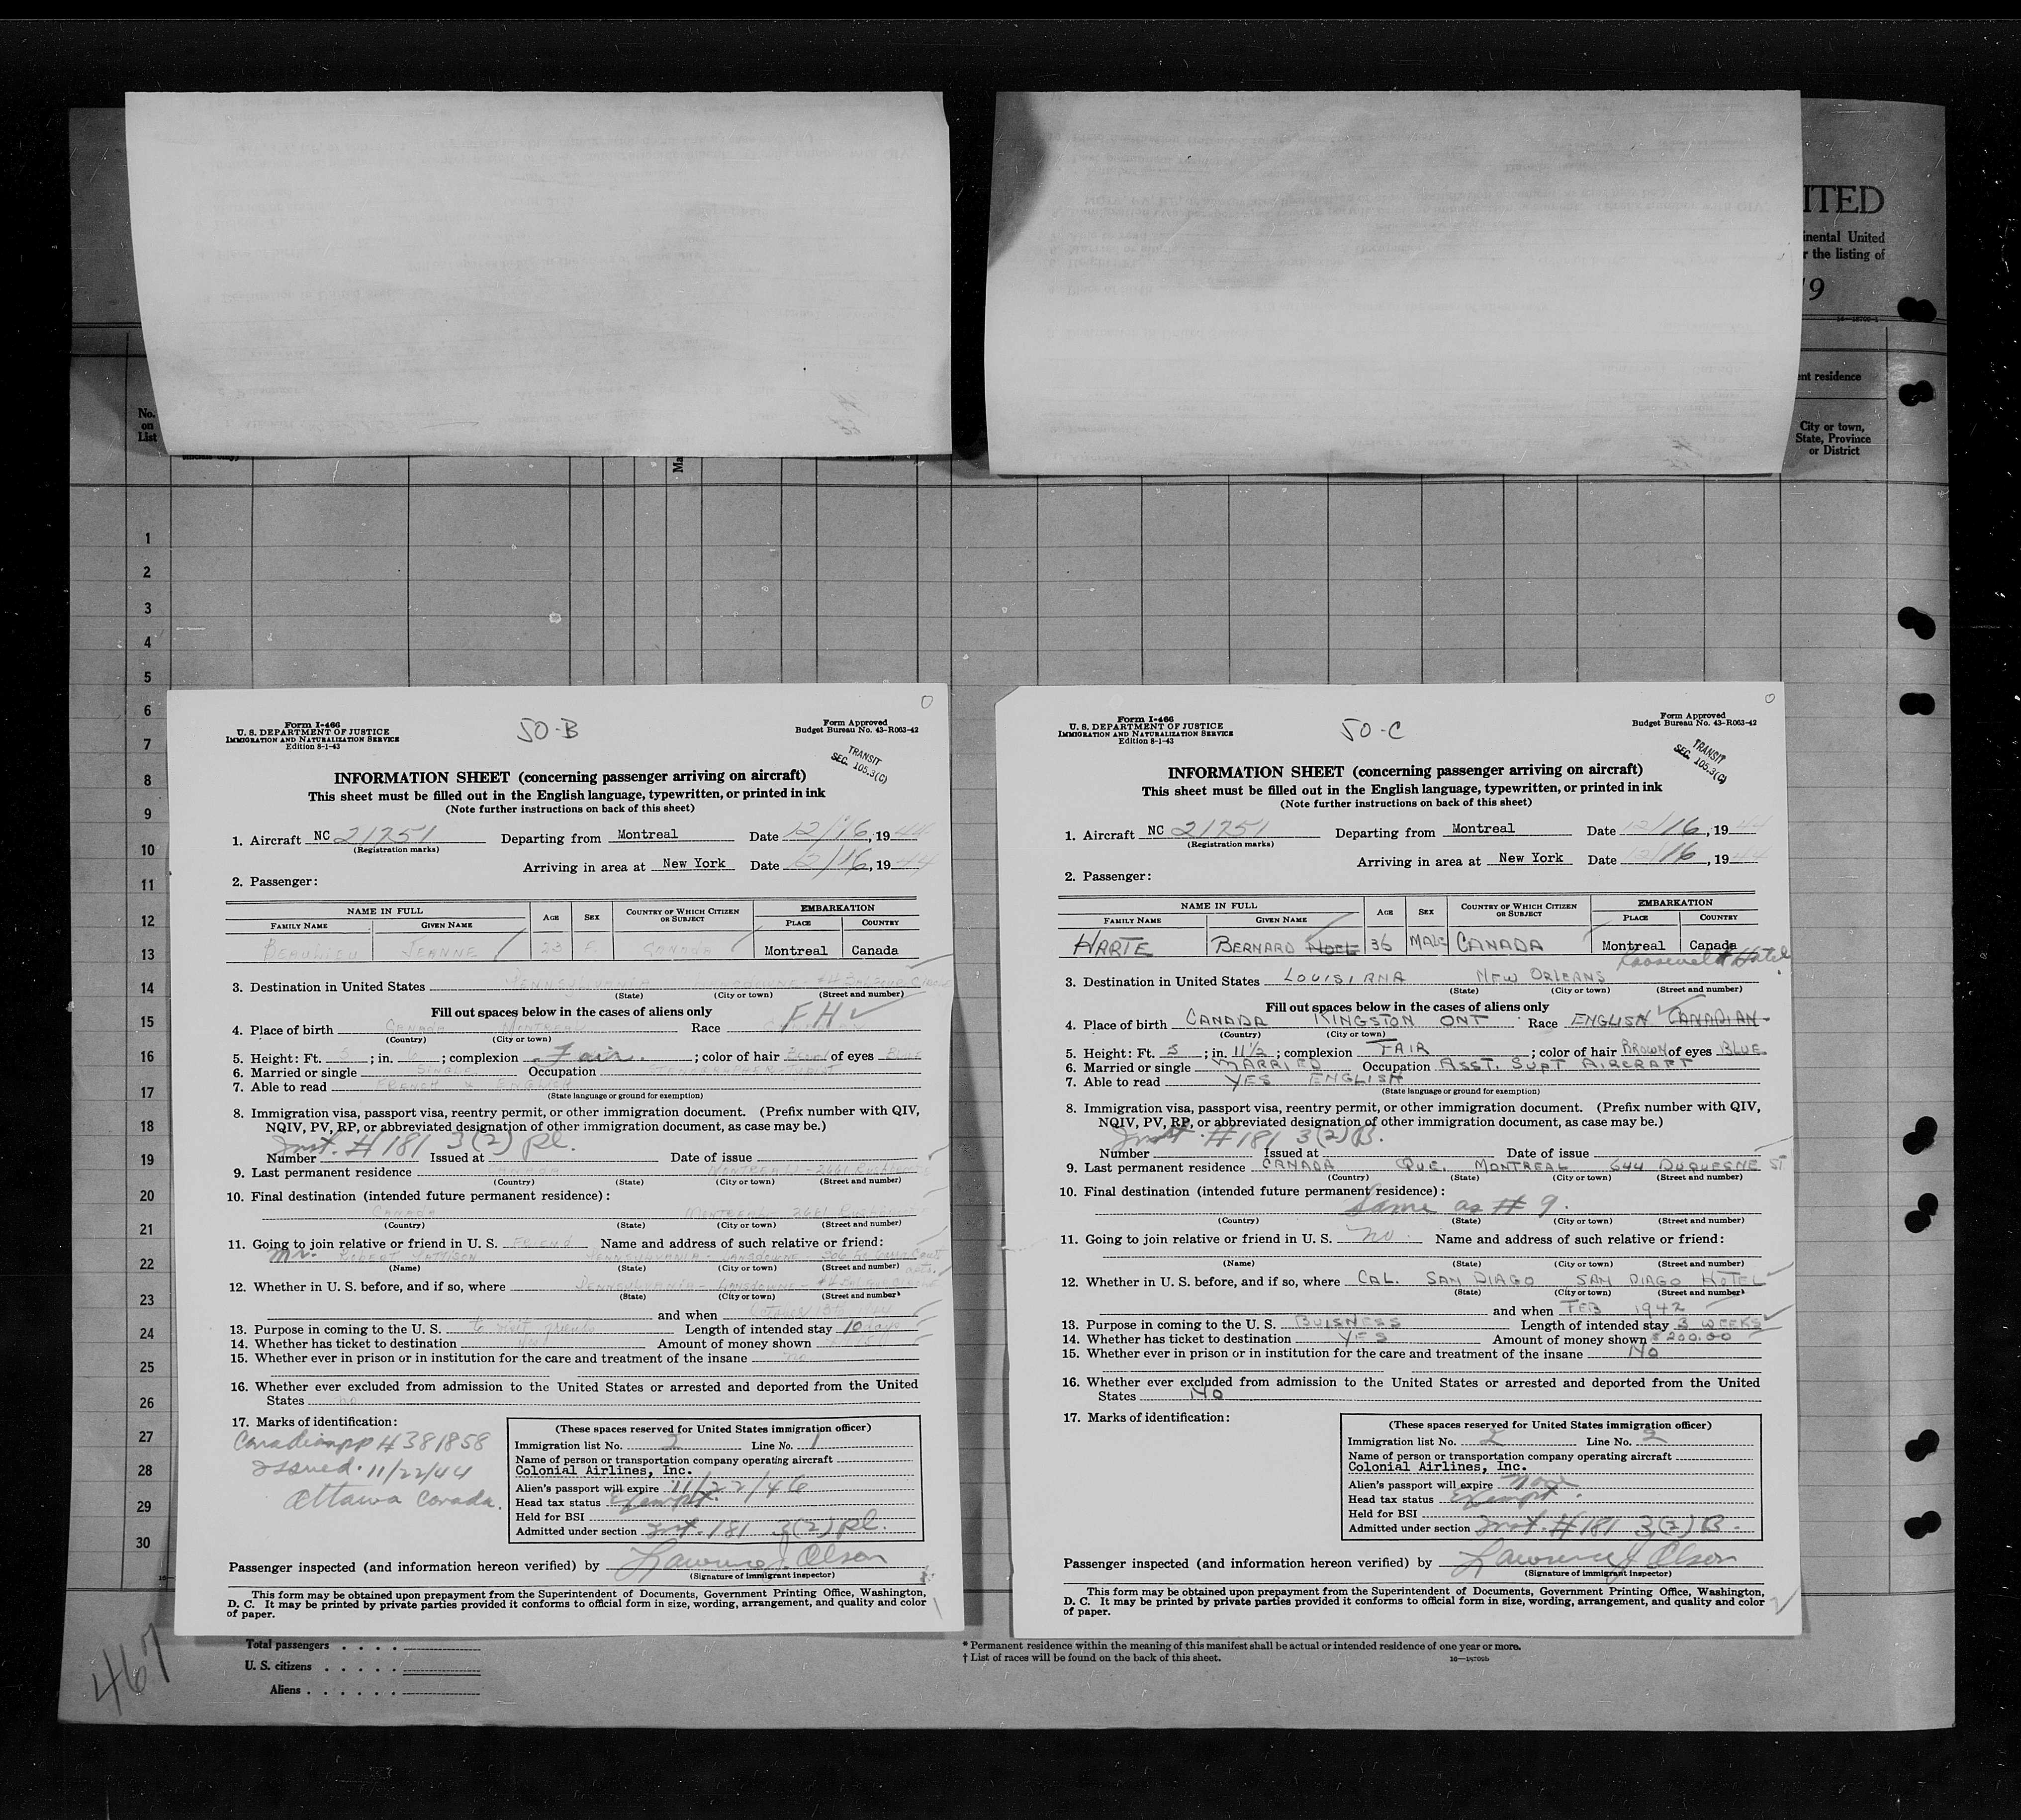 ITED
inental United
r the listing of
19
ent residence
City or town,
State, Province
or District
No.
on
List
1
2
3
4
5
6
7
8
9
10
11
12
13
14
15
16
17
18
19
20
21
22
23
24
25
26
27
28
29
30
Form I-466
U. S. DEPARTMENT OF JUSTICE
IMMIGRATION AND NATURALIZATION SERVICE
Edition 8-1-43
50-B
Form Approved
Budget Bureau No. 43-R063-42
TRANSIT
SEC. 105.3(C)
INFORMATION SHEET (concerning passenger arriving on aircraft)
This sheet must be filled out in the English language, typewritten, or printed in ink
(Note further instructions on back of this sheet)
1. Aircraft NC 21751 Departing from Montreal Date 12/16, 1944
(Registration marks)
Arriving in area at New York Date 12/16, 1944
2. Passenger:
NAME IN FULL AGE SEX COUNTRY OF WHICH CITIZEN OR SUBJECT EMBARKATION
FAMILY NAME GIVEN NAME PLACE COUNTRY
BEAULIEU JEANNE 23 F. CANADA Montreal Canada
3. Destination in United States PENNSYLVANIA
(State) (City or town) (Street and number)
Fill out spaces below in the cases of aliens only
4. Place of birth CANADA MONTREAL Race FH
(Country) (City or town)
5. Height: Ft. 5; in. 6; complexion Fair.; color of hair BROWN of eyes BLUE
6. Married or single SINGLE Occupation STENOGRAPHER-TYPIST
7. Able to read FRENCH & ENGLISH
(State language or ground for exemption)
8. Immigration visa, passport visa, reentry permit, or other immigration document. (Prefix number with QIV,
NQIV, PV, RP, or abbreviated designation of other immigration document, as case may be.)
Inst. #181 3(2) Pl.
Number Issued at Date of issue
9. Last permanent residence CANADA MONTREAL 2661
(Country) (State) (City or town) (Street and number)
10. Final destination (intended future permanent residence):
CANADA MONTREAL 2661
(Country) (State) (City or town) (Street and number)
11. Going to join relative or friend in U. S. FRIEND Name and address of such relative or friend:
Mr. ROBERT PENNSYLVANIA - LANSDOWNE -
(Name) (State) (City or town) (Street and number)
12. Whether in U. S. before, and if so, where PENNSYLVANIA - LANSDOWNE -
(State) (City or town) (Street and number)
and when
13. Purpose in coming to the U. S. to visit friends Length of intended stay 10 days
14. Whether has ticket to destination yes Amount of money shown
15. Whether ever in prison or in institution for the care and treatment of the insane no
16. Whether ever excluded from admission to the United States or arrested and deported from the United
States no
17. Marks of identification:
Canadian pp #381858
Issued. 11/22/44
Ottawa Canada.
(These spaces reserved for United States immigration officer)
Immigration list No. 2 Line No. 1
Name of person or transportation company operating aircraft
Colonial Airlines, Inc.
Alien's passport will expire 11/22/46
Head tax status Exempt.
Held for BSI
Admitted under section Inst. 181 3(2) Pl.
Passenger inspected (and information hereon verified) by Lawrence J. Olson
(Signature of immigrant inspector)
This form may be obtained upon prepayment from the Superintendent of Documents, Government Printing Office, Washington,
D. C. It may be printed by private parties provided it conforms to official form in size, wording, arrangement, and quality and color
of paper.
Form I-466
U. S. DEPARTMENT OF JUSTICE
IMMIGRATION AND NATURALIZATION SERVICE
Edition 8-1-43
50-C
Form Approved
Budget Bureau No. 43-R063-42
TRANSIT
SEC. 105.3(C)
INFORMATION SHEET (concerning passenger arriving on aircraft)
This sheet must be filled out in the English language, typewritten, or printed in ink
(Note further instructions on back of this sheet)
1. Aircraft NC 21751 Departing from Montreal Date 12/16, 1944
(Registration marks)
Arriving in area at New York Date 12/16, 1944
2. Passenger:
NAME IN FULL AGE SEX COUNTRY OF WHICH CITIZEN OR SUBJECT EMBARKATION
FAMILY NAME GIVEN NAME PLACE COUNTRY
HARTE BERNARD NOEL 36 MALE CANADA Montreal Canada
Roosevelt Hotel
3. Destination in United States LOUISIANA NEW ORLEANS
(State) (City or town) (Street and number)
Fill out spaces below in the cases of aliens only
4. Place of birth CANADA KINGSTON ONT Race ENGLISH CANADIAN
(Country) (City or town)
5. Height: Ft. 5; in. 11 1/2; complexion FAIR; color of hair BROWN of eyes BLUE
6. Married or single MARRIED Occupation ASST. SUPT AIRCRAFT
7. Able to read YES ENGLISH
(State language or ground for exemption)
8. Immigration visa, passport visa, reentry permit, or other immigration document. (Prefix number with QIV,
NQIV, PV, RP, or abbreviated designation of other immigration document, as case may be.)
Inst. #181 3(2) B.
Number Issued at Date of issue
9. Last permanent residence CANADA QUE. MONTREAL 644 DUQUESNE ST
(Country) (State) (City or town) (Street and number)
10. Final destination (intended future permanent residence):
Same as #9.
(Country) (State) (City or town) (Street and number)
11. Going to join relative or friend in U. S. no. Name and address of such relative or friend:
(Name) (State) (City or town) (Street and number)
12. Whether in U. S. before, and if so, where CAL. SAN DIAGO SAN DIAGO HOTEL
(State) (City or town) (Street and number)
and when FEB 1942
13. Purpose in coming to the U. S. BUISNESS Length of intended stay 3 WEEKS
14. Whether has ticket to destination YES Amount of money shown $200.00
15. Whether ever in prison or in institution for the care and treatment of the insane NO
16. Whether ever excluded from admission to the United States or arrested and deported from the United
States NO
17. Marks of identification:
(These spaces reserved for United States immigration officer)
Immigration list No. 2 Line No. 2
Name of person or transportation company operating aircraft
Colonial Airlines, Inc.
Alien's passport will expire None
Head tax status Exempt.
Held for BSI
Admitted under section Inst. #181 3(2) B.
Passenger inspected (and information hereon verified) by Lawrence J. Olson
(Signature of immigrant inspector)
This form may be obtained upon prepayment from the Superintendent of Documents, Government Printing Office, Washington,
D. C. It may be printed by private parties provided it conforms to official form in size, wording, arrangement, and quality and color
of paper.
467
Total passengers
U. S. citizens
Aliens
* Permanent residence within the meaning of this manifest shall be actual or intended residence of one year or more.
† List of races will be found on the back of this sheet.